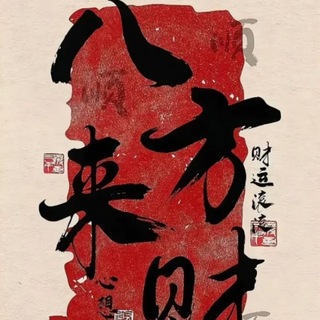 八方来财
财运滚滚
心想
顺
顺